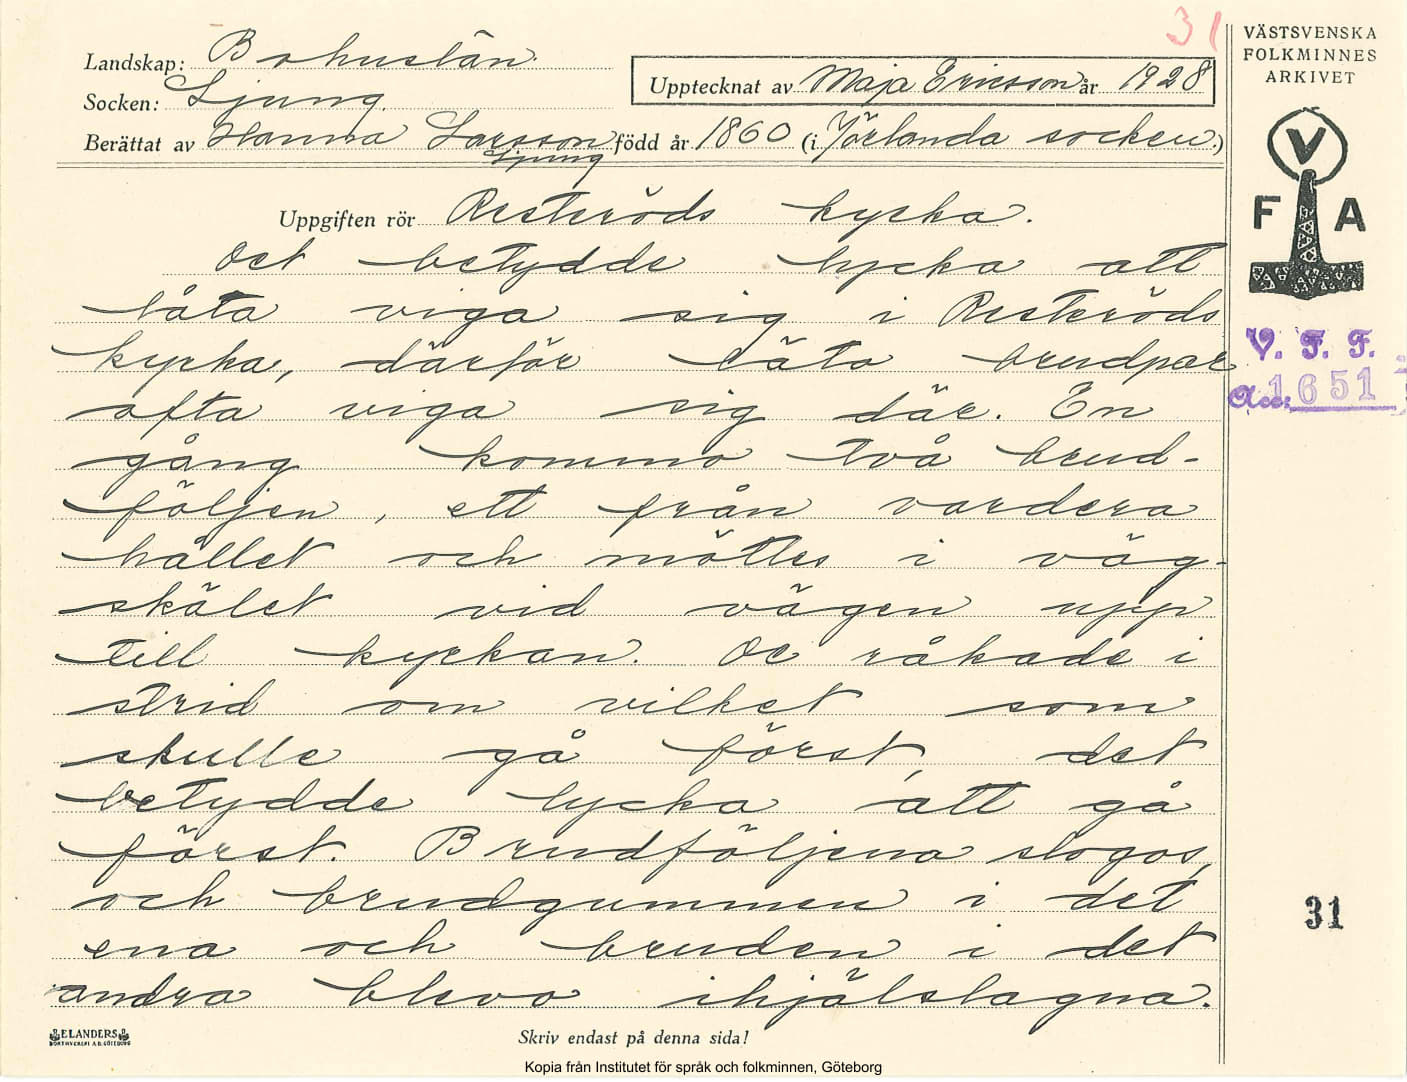 31
VÄSTSVENSKA
FOLKMINNES
ARKIVET
Landskap: Bohuslän
Upptecknat av Maja Ericsson år 1928
Socken: Ljung
Berättat av Hanna Larsson född år 1860 (i Jörlanda socken.)
Ljung
V
F A
Uppgiften rör Resteröds kyrka.
Det betydde lycka att
låta viga sig i Resteröds
kyrka, därför läto brudpar
ofta viga sig där. En
gång kommo två brud-
följen, ett från vardera
hållet och möttes i väg-
skälet vid vägen upp
till kyrkan. De råkade i
strid om vilket som
skulle gå först, det
betydde lycka att gå
först. Brudföljena slogos,
och brudgummen i det
ena och bruden i det
andra blevo ihjälslagna.
V. F. F.
Acc: 1651
31
ELANDERS
BOKTRYCKERI A.B. GÖTEBORG
Skriv endast på denna sida!
Kopia från Institutet för språk och folkminnen, Göteborg